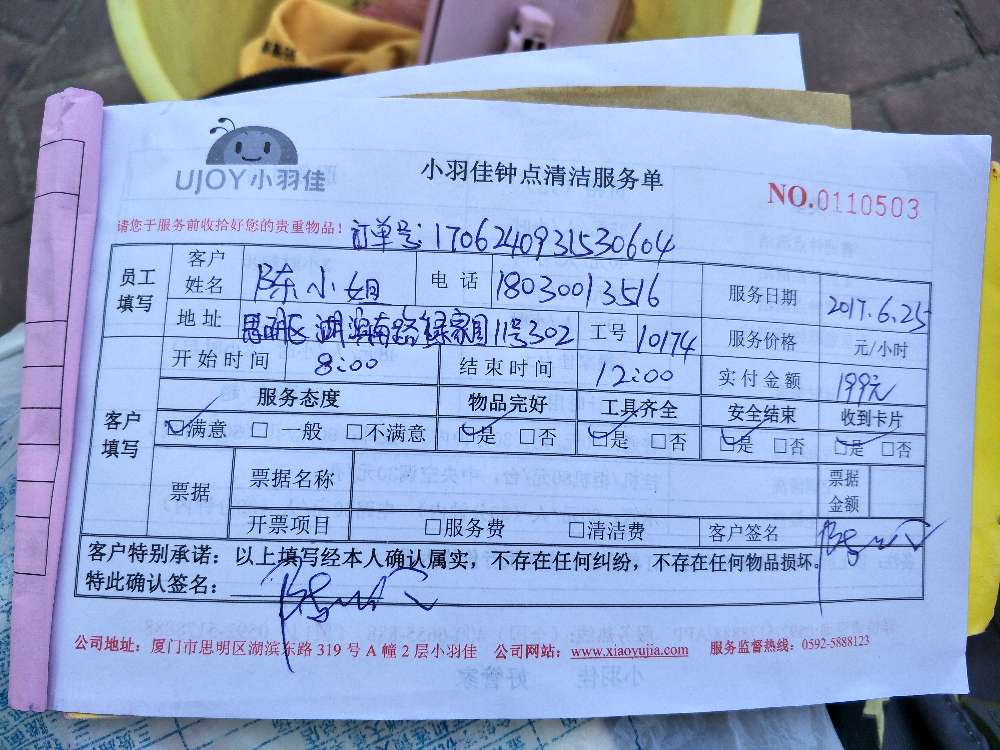 UJOY小羽佳
小羽佳钟点清洁服务单
NO.0110503
请您于服务前收拾好您的贵重物品！
订单号：1706240931530604
员工填写
客户姓名 陈小姐 电话 18030013516 服务日期 2017.6.25
地址 思明区湖滨南路绿家园11号302 工号 10174 服务价格 元/小时
开始时间 8:00 结束时间 12:00 实付金额 199元
客户填写
服务态度 物品完好 工具齐全 安全结束 收到卡片
☑满意 □一般 □不满意 ☑是 □否 ☑是 □否 ☑是 □否 ☑是 □否
票据 票据名称 票据金额
开票项目 □服务费 □清洁费 客户签名
客户特别承诺：以上填写经本人确认属实，不存在任何纠纷，不存在任何物品损坏。
特此确认签名：
公司地址：厦门市思明区湖滨东路319号A幢2层小羽佳 公司网站：www.xiaoyujia.com 服务监督热线：0592-5888123